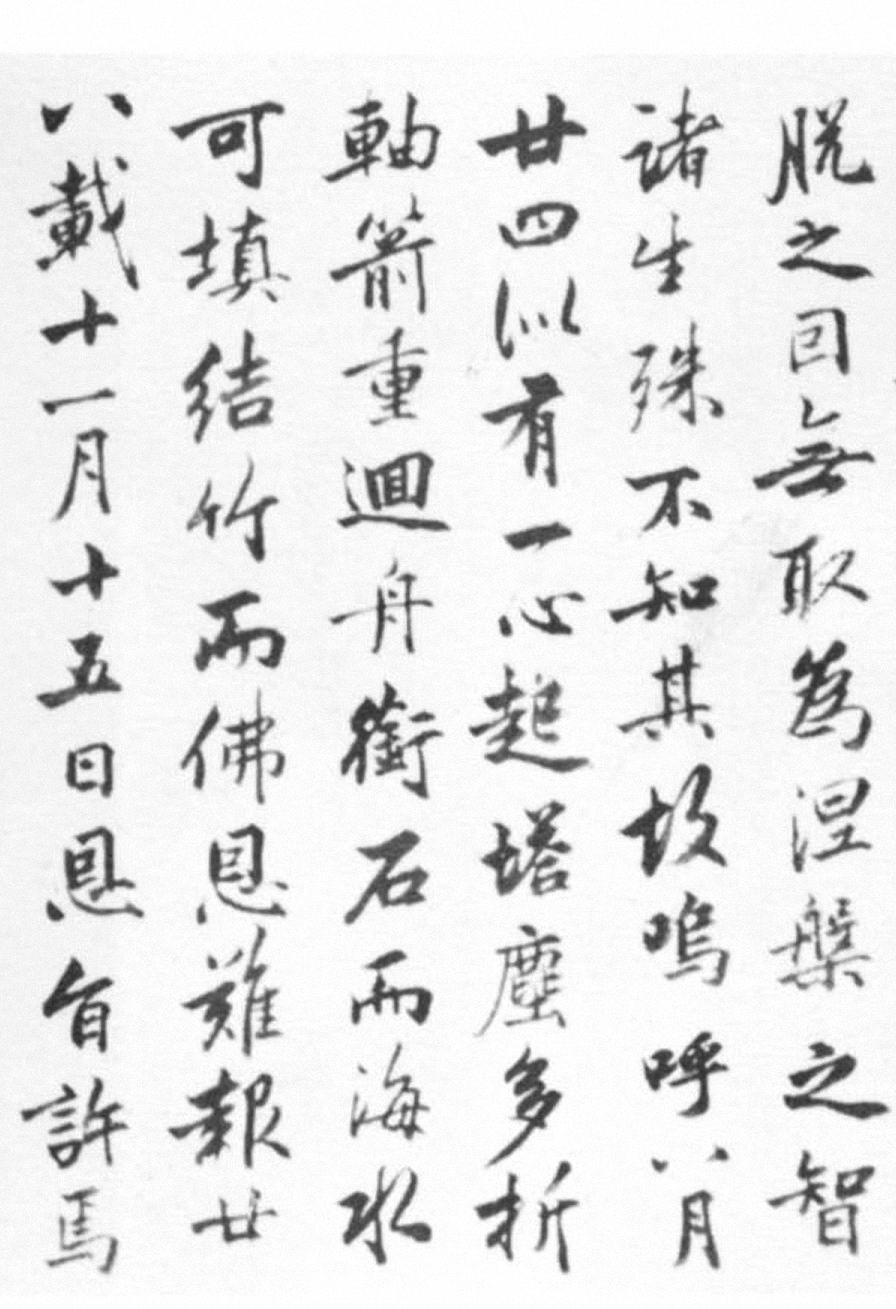 脱之因無取為涅槃之智
諸生殊不知其故嗚呼八月
廿四似有一心起塔塵多折
軸箭重迴舟銜石而海水
可填結竹而佛恩難報廿
八載十一月十五日恩旨許焉